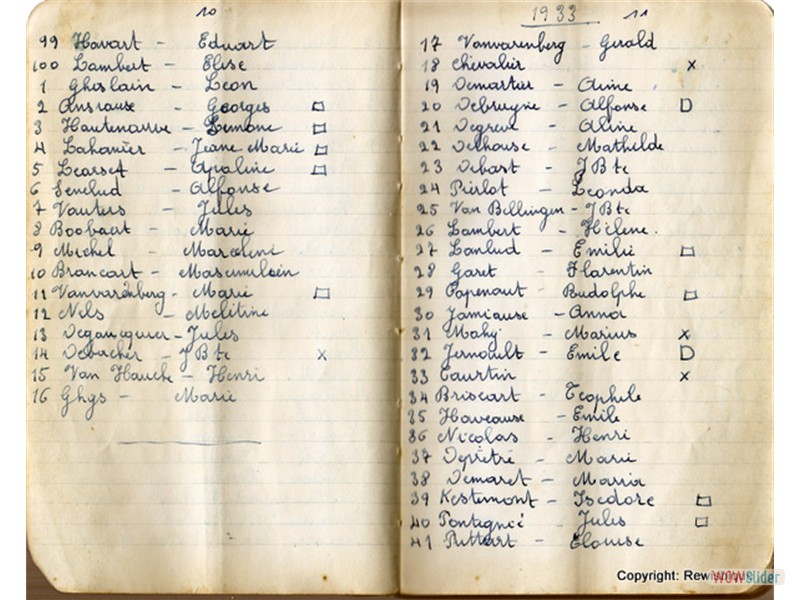 10
99 Havart - Eduart
100 Lambert - Elise
1 Ghislain - Leon
2 Ansiaux - Georges □
3 Hautenauve - Simone □
4 Lahauier - Jeane-Marie □
5 Learset - Apaline □
6 Senelud - Alfonse
7 Vauters - Jules
8 Boobaut - Marie
9 Michel - Marcelini
10 Brancart - Mascimilain
11 Vanvarenberg - Marie □
12 Nils - Melitine
13 Degaucquier - Jules
14 Debacker - J Bte x
15 Van Hauche - Henri
16 Ghys - Marie
1933 11
17 Vanvarenberg - Gerald
18 Chevalier x
19 Demartier - Aline
20 Debruyne - Alfonse D
21 Degreve - Aline
22 Delhouse - Mathelde
23 Debast - J Bte
24 Pierlot - Leonda
25 Van Bellingen - J Bte
26 Lambert - Hélene.
27 Lanlud - Emilie □
28 Garet - Florentin
29 Papenaut - Rudolphe □
30 Jamiause - Anna
31 Mahy - Marius x
32 Jernoult - Emile D
33 Taurtin x
34 Briscart - Teophile
35 Haveause - Emile
36 Nicolas - Henri
37 Depretre - Marie
38 Demaret - Maria
39 Kestemont - Isedore □
40 Pontegnie - Jules □
41 Puttart - Elouise
Copyright:
WOWSlider